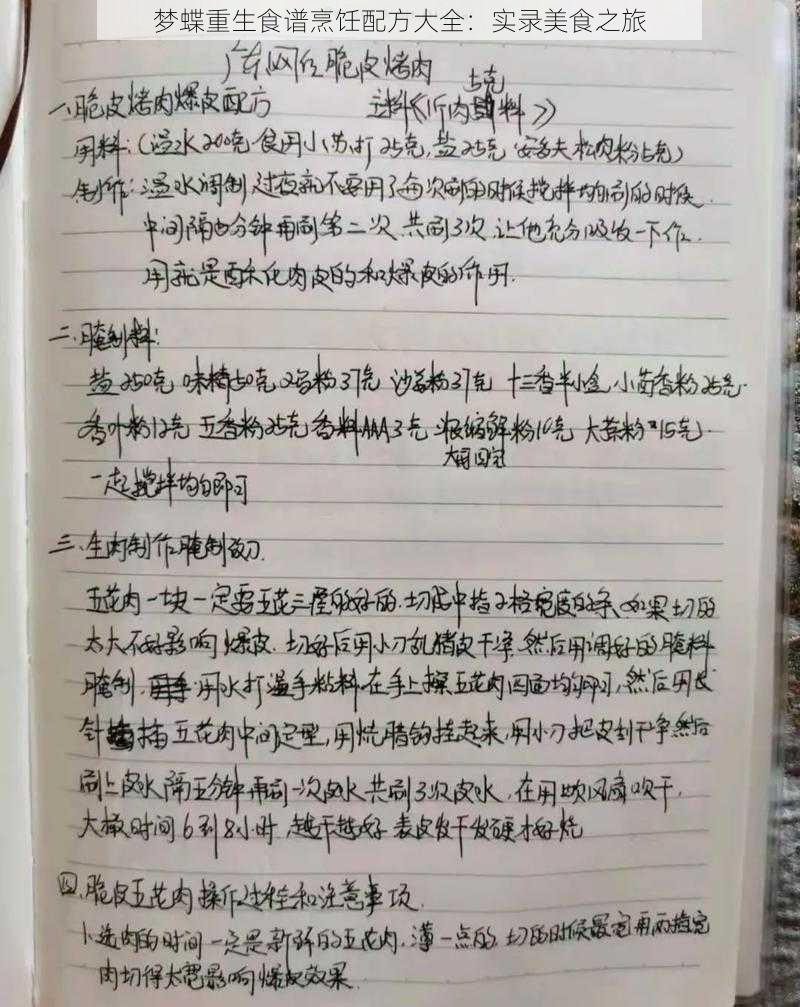 梦蝶重生食谱烹饪配方大全：实录美食之旅
广东网红脆皮烤肉
一、脆皮烤肉爆皮配方 5克
《1斤肉 料》
用料：（温水200克 食用小苏打25克，盐25克 安多夫松肉粉5克）
制作：温水调制 过夜就不要用了每次刷的时候搅拌均刷的时候
中间隔 分钟再刷第二次，共刷3次，让他充分吸收一下作
用就是 化肉皮的和爆皮的作用.
二、腌制料：
盐250克 味精50克 鸡粉37克 沙姜粉37克 十三香半小盒，小茴香粉25克
香叶粉12克 五香粉25克 香料AAA3克 粉10克 大 粉15克.
一起搅拌均匀即可
三、生肉制作腌制
五花肉一块一定要五花三层的好的，切 中指2格宽度的条（如果切的
太大不好影响爆皮，切好后用小刀 猪皮干净，然后用调好的腌料
腌制， 用水打湿手粘料在手上擦五花肉四面均即可，然后用
针 插五花肉中间定型，用烧腊钩挂起来，用小刀把皮刮干净然后
刷上皮水隔五分钟再刷一次皮水共刷3次皮水，在用吹风扇吹干，
大概时间6到8小时，越干越好 表皮发干发硬才好烧
四、脆皮五花肉操作过程和注意事项.
1、选肉的时间一定是新鲜的五花肉，薄一点的，切的时候 两指宽
肉切得太宽影响爆皮效果.